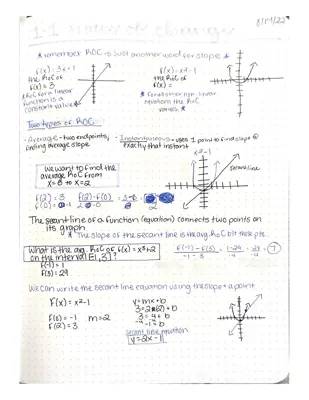 8/17/22
1-1 Rates of Change
* remember ROC is just another word for slope *
f(x) = 3x+1
the ROC of
f(x) = 3
* ROC for a linear
function is a
constant value *
f(x) = x²-1
the ROC of
f(x) =
* for all other non-linear
equations the ROC
varies *
Two types of ROC:
- Average - two endpoints,
finding average slope
- Instantaneous - uses 1 point to find slope @
exactly that instant
x²-1
secant line
We want to find the
average ROC from
x=0 to x=2
f(2) = 3
f(2)-f(0)
The secant line of a function (equation) connects two points on
its graph
* The slope of the secant line is the avg. ROC b/t the pts.
What is the avg. ROC of f(x) = x³+2
on the interval [-1, 3]?
f(-1) = 1
f(3) = 29
f(-1) - f(3)
-1 - 3
= 1-29
-4
7
We can write the secant line equation using the slope + a point
f(x) = x²-1
f(0) = -1
f(2) = 3
m=2
y=mx+b
3=2(2)+b
3=4+b
-1=b
secant line equation
y=2x-1